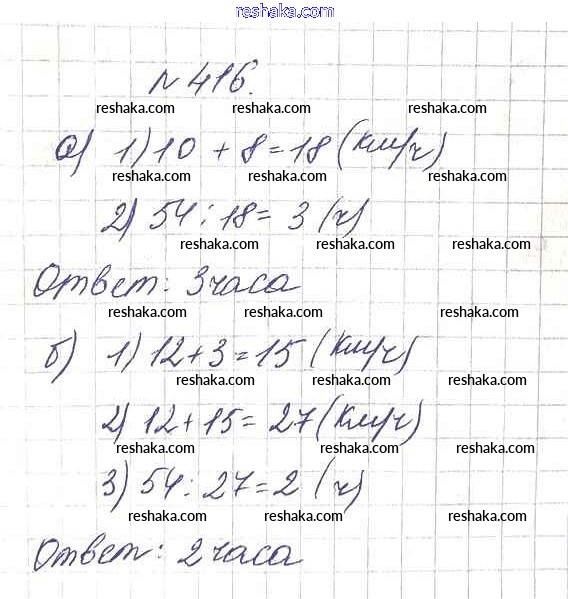 reshaka.com
№ 416.
reshaka.com reshaka.com reshaka.com
а) 1) 10 + 8 = 18 (км/ч)
reshaka.com reshaka.com reshaka.com
2) 54 : 18 = 3 (ч)
reshaka.com reshaka.com
Ответ: 3 часа
reshaka.com reshaka.com reshaka.com
б) 1) 12 + 3 = 15 (км/ч)
reshaka.com reshaka.com
2) 12 + 15 = 27 (км/ч)
reshaka.com reshaka.com reshaka.com
3) 54 : 27 = 2 (ч)
reshaka.com reshaka.com reshaka.com
Ответ: 2 часа
reshaka.com reshaka.com